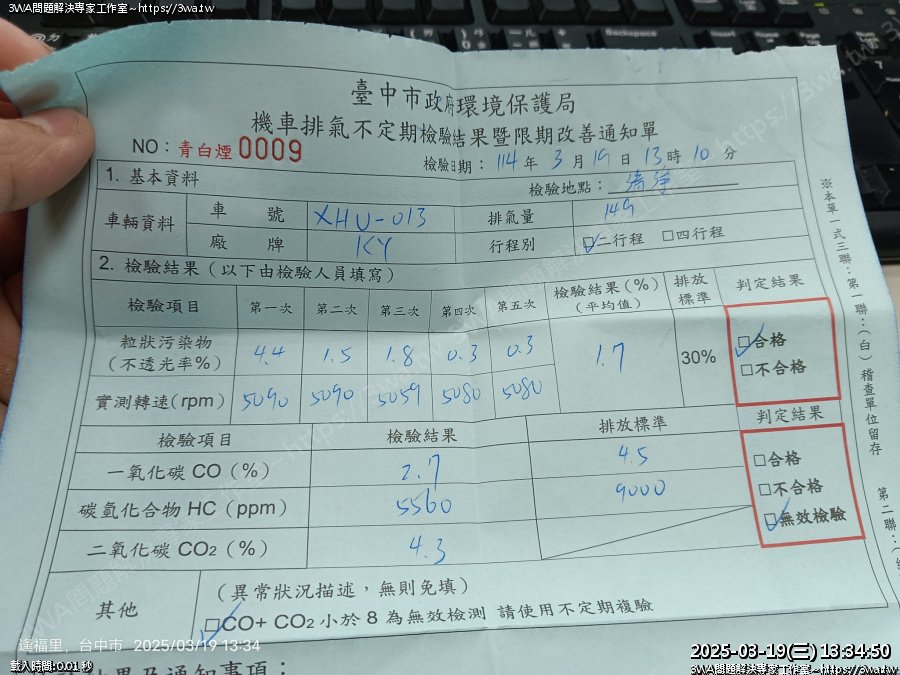 3WA問題解決專家工作室~https://3wa.tw
臺中市政府環境保護局
機車排氣不定期檢驗結果暨限期改善通知單
NO：青白煙0009
檢驗日期：114年3月19日13時10分
1. 基本資料
檢驗地點：
車輛資料 車號 XHU-013 排氣量 149
廠牌 KY 行程別 ☑二行程 □四行程
2. 檢驗結果（以下由檢驗人員填寫）
檢驗項目 第一次 第二次 第三次 第四次 第五次 檢驗結果(%)(平均值) 排放標準 判定結果
粒狀污染物（不透光率%） 4.4 1.5 1.8 0.3 0.3 1.7 30% ☑合格 □不合格
實測轉速(rpm) 5090 5090 5059 5080 5080
檢驗項目 檢驗結果 排放標準 判定結果
一氧化碳 CO（%） 2.7 4.5 □合格
碳氫化合物 HC（ppm） 5560 9000 □不合格
二氧化碳 CO2（%） 4.3 ☑無效檢驗
其他 （異常狀況描述，無則免填）
☑CO+ CO2 小於 8 為無效檢測 請使用不定期複驗
※本單一式三聯：第一聯：（白）稽查單位留存
第二聯：
逢福里，台中市 2025/03/19 13:34
載入時間:0.01 秒
結果及通知事項：
2025-03-19(三) 13:34:50
3WA問題解決專家工作室~https://3wa.tw